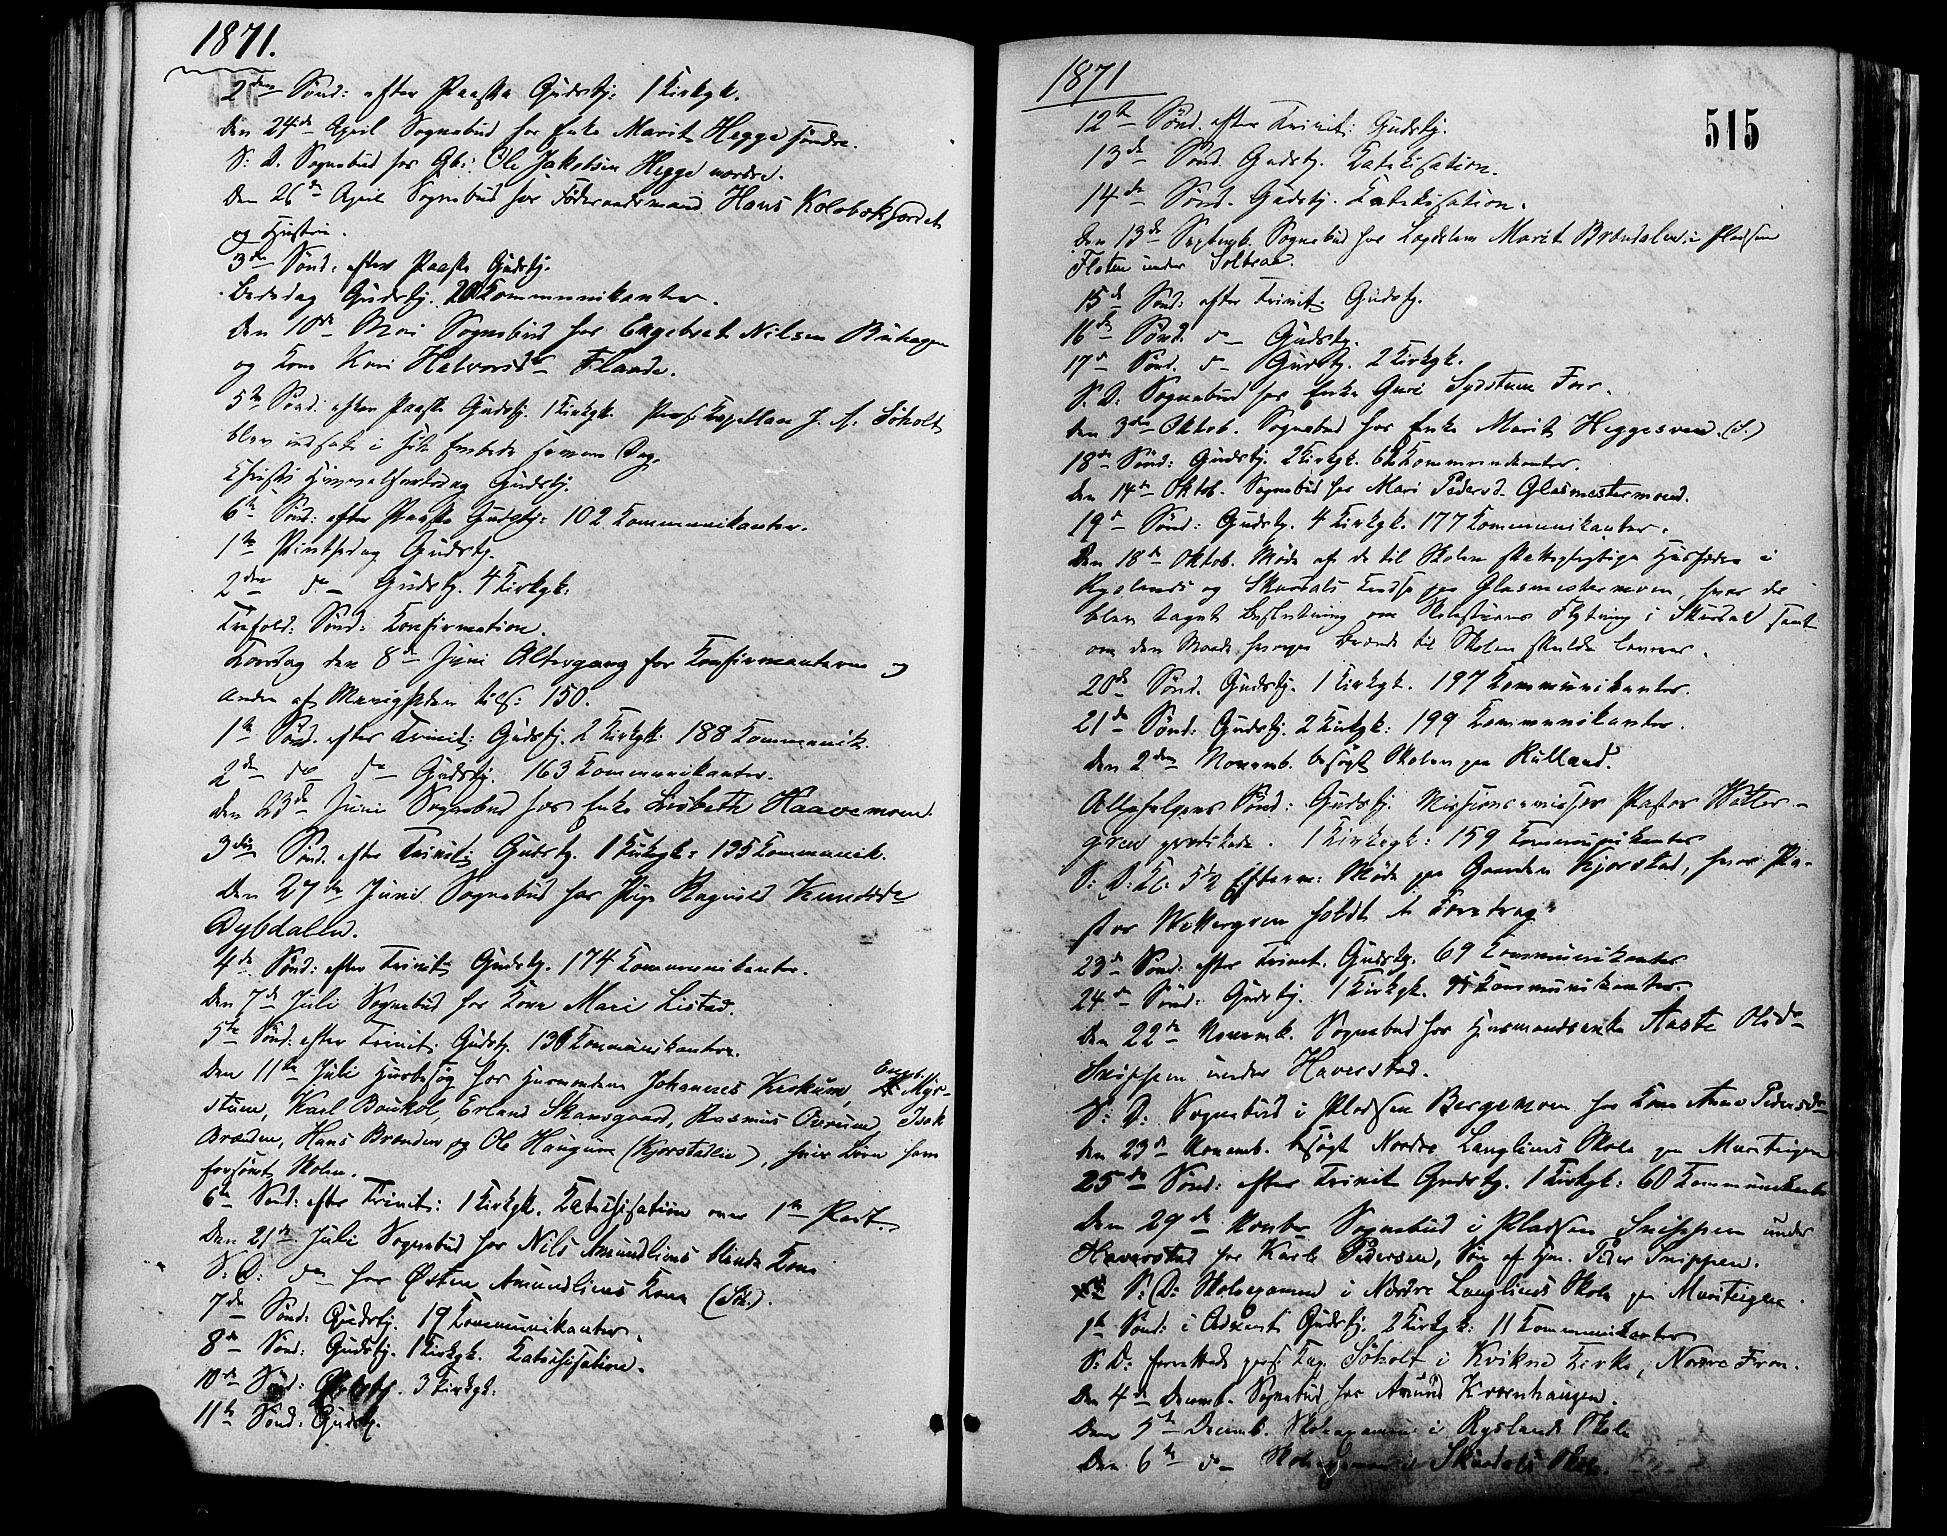 1871.
2den Sönd: efter Paaske Gudstj: 1 Kirkgk.
Den 24de April Sognebud hos Enke Marit Hegge söndre.
S: D. Sognebud hos Gb: Ole Jakobsen Hegge nordre.
Den 26de April Sognebud hos Föderaadsmand Hans Kolobækfordet
og Hustru.
3die Sönd: efter Paaske Gudstj.
Bededag Gudstj. 20 Kommunikanter.
Den 10de Mai Sognebud hos Engebret Nilsen Buhagen
og Kone Kari Halvorsd. Flaade.
5te Sönd: efter Paaske Gudstj. 1 Kirkgk. Pers. Kapellan J. A. Söholt
blev indsat i sit Embede samme Dag.
Christi Himmelfartsdag Gudstj.
6te Sönd: efter Paaske Gudstj: 102 Kommunikanter.
1te Pintsedag Gudstj.
2den do Gudstj. 4 Kirkgk.
Trefold: Sönd: Konfirmation.
Torsdag den 8de Juni Altergang for Konfirmanterne og
Andre af Menigheden tils: 150.
1te Sönd. efter Trinit: Gudstj. 2 Kirkgk. 188 Kommunik.
2den do do Gudstj. 163 Kommunikanter.
Den 23de Juni Sognebud hos Enke Lisbeth Haavemoen.
3die Sönd. efter Trinit: Gudstj. 1 Kirkgk: 135 Kommunik.
Den 27de Juni Sognebud hos Pige Ragnild Knudsd.
Dybdalen.
4de Sönd: efter Trinit: Gudstj. 174 Kommunikanter.
Den 7de Juli Sognebud hos Kone Mari Listad.
5te Sönd. efter Trinit: Gudstj. 136 Kommunikanter.
Den 11te Juli Husbesög hos Husmændene Johannes Kirkum, Engebr. Myr-
stuen, Karl Boukol, Erland Skansgaard, Rasmus Övrum, Isak
Bræden, Hans Brænden og Ole Haugum (Kjorstadlie), hvis Börn have
forsömt Skolen.
6te Sönd: efter Trinit: 1 Kirkgk. Katekisation over 1te Part.
Den 21de Juli Sognebud hos Nils Amundliens blinde Kone
S. D: do hos Østen Amundliens Kone
7de Sönd: Gudstj. 19 Kommunikanter.
8de Sönd: Gudstj. 1 Kirkgk. Katekisation.
10de Sönd: Gudstj. 3 Kirkgk.
11te Sönd. Gudstj.
1871
515
12te Sönd. efter Trinit: Gudstj.
13de Sönd. Gudstj. Katekisation.
14de Sönd. Gudstj. Katekisation.
Den 13de Septemb. Sognebud hos Lægdslem Marit Brændalen i Pladsen
Floten under Solbraa.
15de Sönd: efter Trinit. Gudstj.
16de Sönd. do Gudstj.
17de Sönd. do Gudstj. 2 Kirkgk.
S. D. Sognebud hos Enke Guri Sydstuen Forr.
Den 3die Oktob. Sognebud hos Enke Marit Heggesveen. (S.)
18de Sönd: Gudstj. 2 Kirkgk. 62 Kommunikanter.
Den 14de Oktob. Sognebud hos Mari Pedersd. Glasmestermoen.
19de Sönd: Gudstj. 4 Kirkgk. 177 Kommunikanter.
Den 18de Oktob. Möde af de til Skolen skattepligtige Husfædre i
Ryslands og Skurdals Kreds paa Glasmestermoen, hvor der
blev taget Beslutning om Skolestuens Flytning i Skurdal samt
om den Maade hvorpaa Brænde til Skolen skulde leveres.
20de Sönd. Gudstj. 1 Kirkgk. 197 Kommunikanter.
21de Sönd: Gudstj. 2 Kirkgk: 199 Kommunikanter.
Den 2den Novemb. besögt Skolen paa Rulland.
Allehelgens Sönd: Gudstj. Missionsemissær Pastor Wetter-
gren prædikede. 1 Kirkegk: 159 Kommunikanter
S: D: Kl. 5½ Efterm: Möde paa Gaarden Kjorstad, hvor Pa-
stor Wettergren holdt et Foredrag.
23de Sönd: efter Trinit. Gudstj. 69 Kommunikanter
24de Sönd: Gudstj. 1 Kirkgk. 95 Kommunikanter
Den 22de Novemb. Sognebud hos Husmandsenke Aaste Olsd.
Snippen under Haverstad.
S: D: Sognebud i Pladsen Bergemoen hos Kone Anne Pedersd.
Den 23de Novemb. besögt Nordre Langliens Skole paa Murteigen
25de Sönd: efter Trinit Gudstj. 1 Kirkgk: 60 Kommunikanter
Den 29de Novbr Sognebud i Pladsen Snippen under
Haverstad hos Karl Pedersen, Sön af Hm. Peder Snippen.
S: D: Skoleexamen i Nordre Langliens Skole paa Murteigen.
1te Sönd: i Advent Gudstj. 2 Kirkgk: 11 Kommunikanter
S: D: forrettede pers. Kap. Söholt i Kvikne Kirke, Nordre Fron.
Den 4de Decemb. Sognebud hos Amund Kværnhaugen.
Den 5te Decemb. Skoleexamen i Ryslands Skole
Den 6te do Skoleexamen i Skurdals Skole.